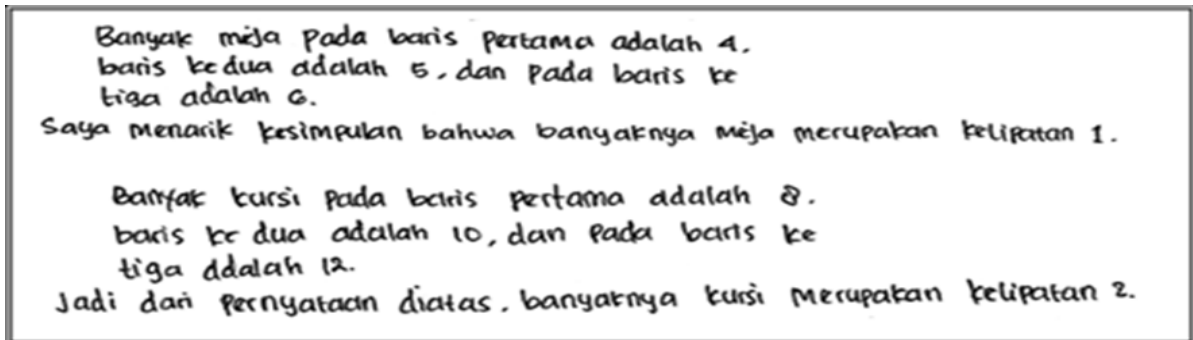 Banyak meja pada baris pertama adalah 4.
baris kedua adalah 5, dan pada baris ke
tiga adalah 6.
Saya menarik kesimpulan bahwa banyaknya meja merupakan kelipatan 1.
Banyak kursi pada baris pertama adalah 8.
baris ke dua adalah 10, dan pada baris ke
tiga adalah 12.
Jadi dari pernyataan diatas, banyaknya kursi merupakan kelipatan 2.